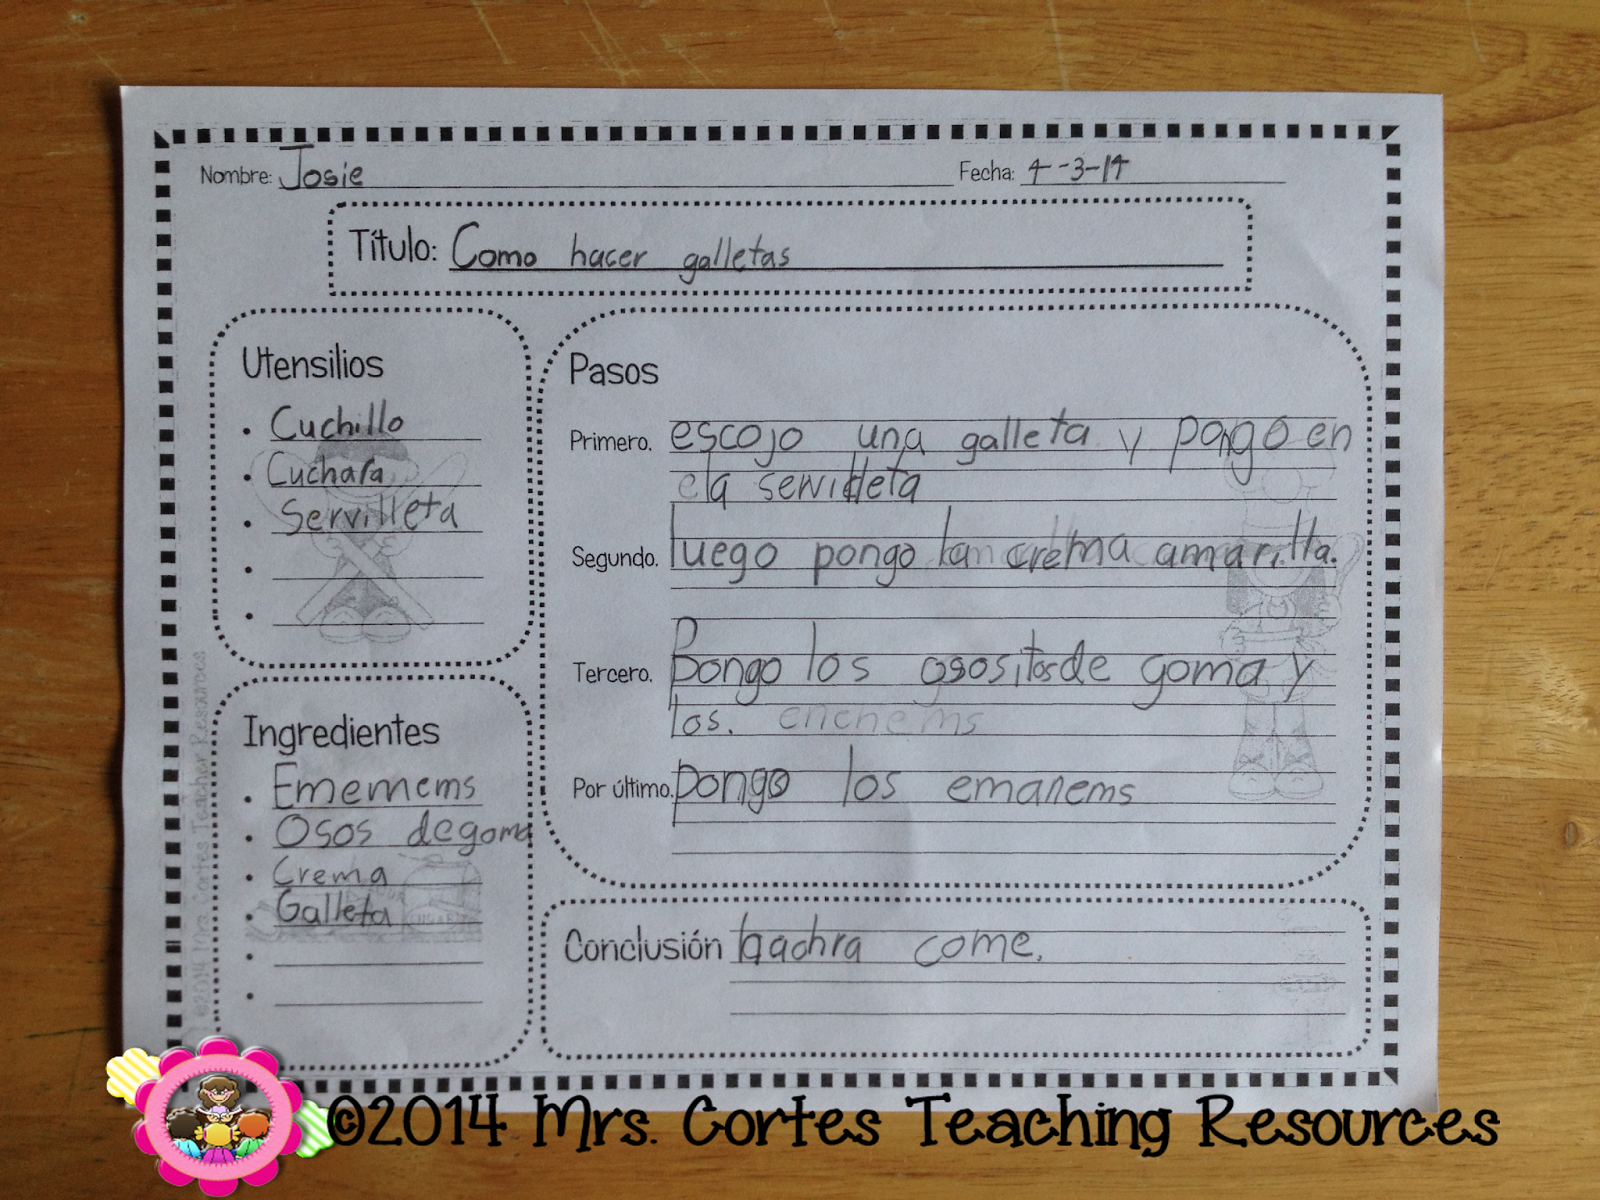 Nombre: Josie Fecha: 4-3-14
Título: Como hacer galletas
Utensilios
• Cuchillo
• Cuchara
• Servilleta
•
•
Ingredientes
• Ememems
• Osos de goma
• Crema
• Galleta
•
•
Pasos
Primero. escojo una galleta y pongo en
la servilleta
Segundo. luego pongo la crema amarilla.
Tercero. Pongo los osositos de goma y
los.
Por último. pongo los emanems
Conclusión come.
©2014 Mrs. Cortes Teacher Resources
©2014 Mrs. Cortes Teaching Resources